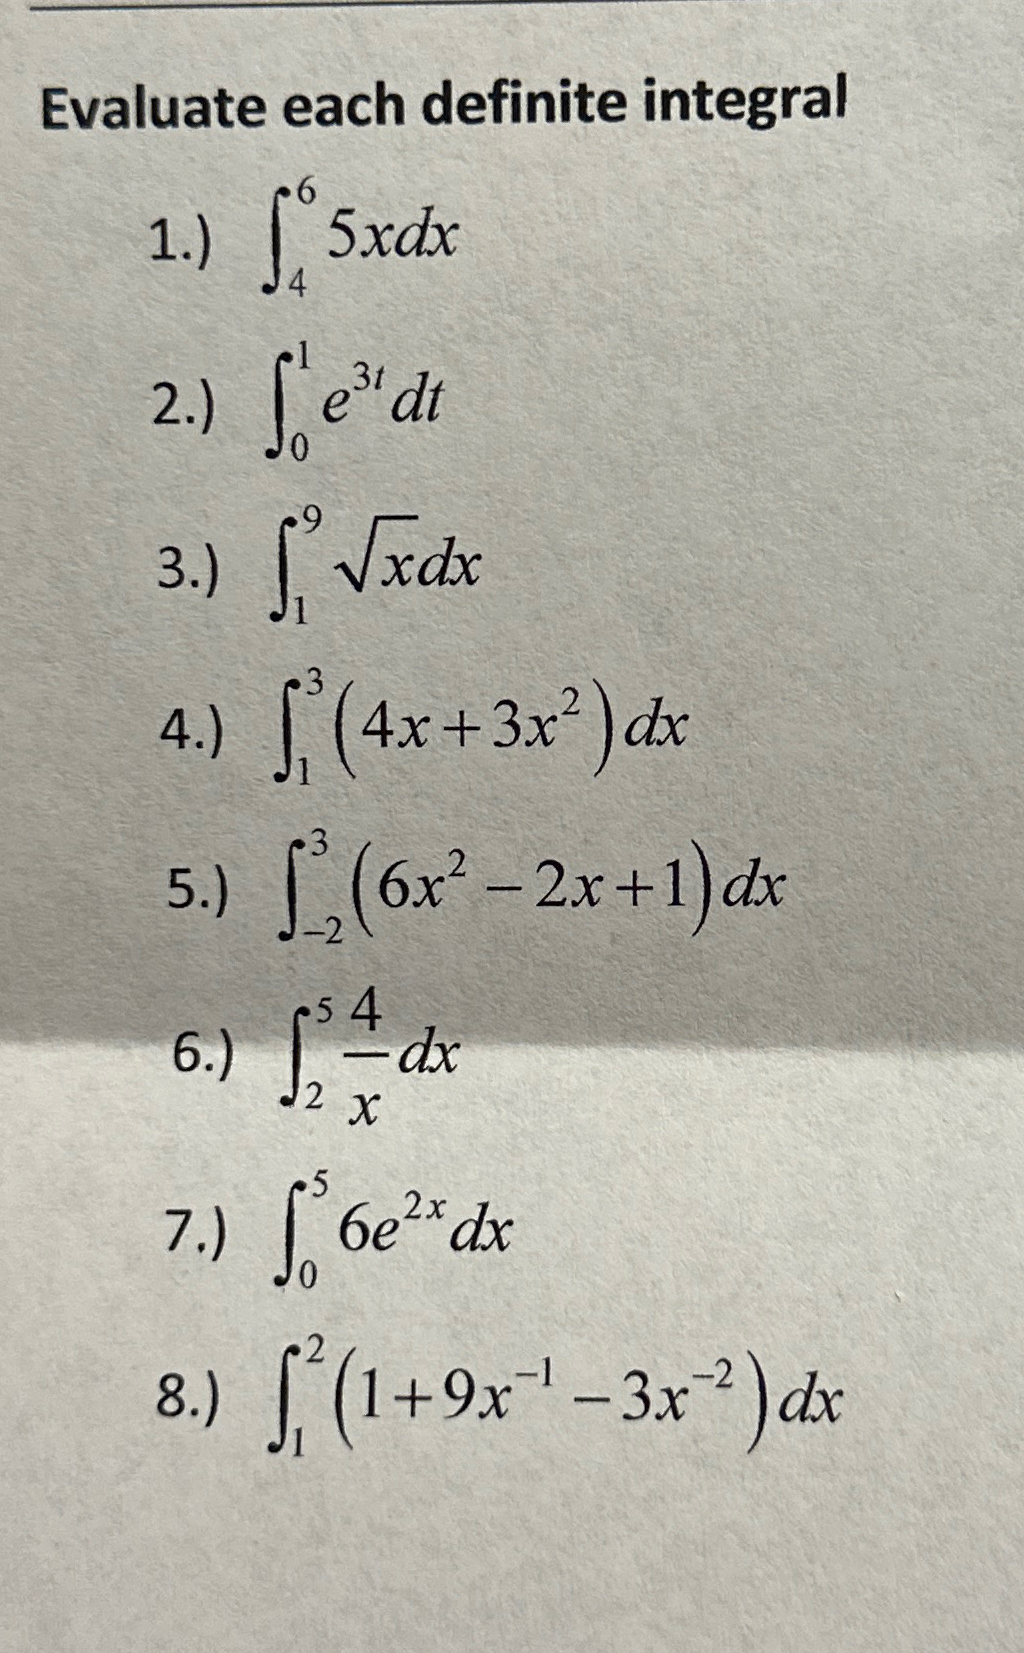 Evaluate each definite integral
1.) ∫₄⁶ 5xdx
2.) ∫₀¹ e³ᵗ dt
3.) ∫₁⁹ √x dx
4.) ∫₁³ (4x+3x²) dx
5.) ∫₋₂³ (6x² − 2x+1) dx
6.) ∫₂⁵ 4/x dx
7.) ∫₀⁵ 6e²ˣ dx
8.) ∫₁² (1+9x⁻¹ − 3x⁻²) dx